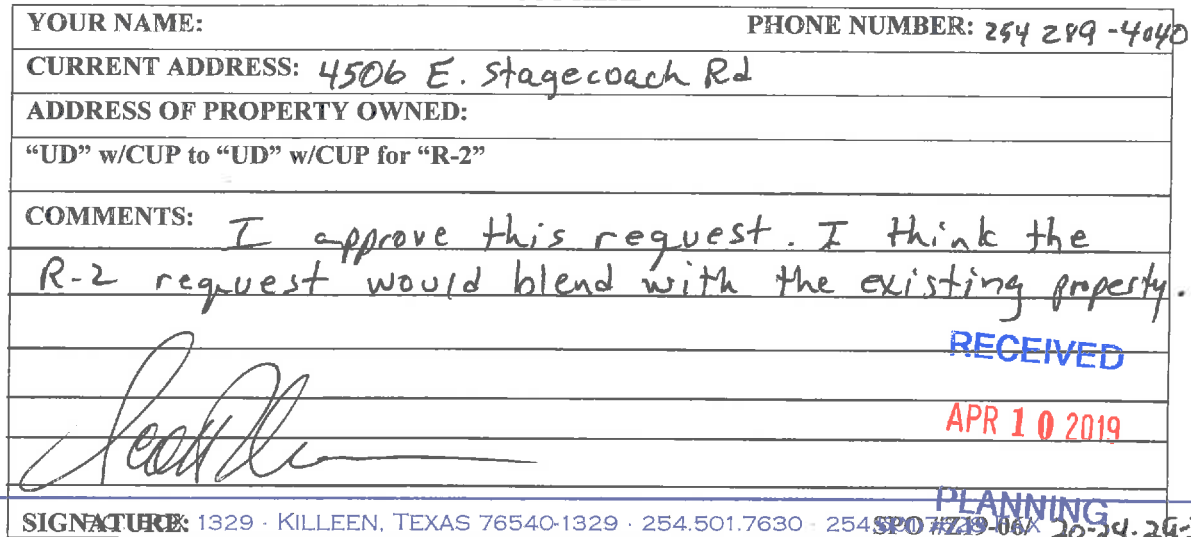 YOUR NAME: PHONE NUMBER: 254 289-4040
CURRENT ADDRESS: 4506 E. Stagecoach Rd
ADDRESS OF PROPERTY OWNED:
“UD” w/CUP to “UD” w/CUP for “R-2”
COMMENTS: I approve this request. I think the
R-2 request would blend with the existing property.
RECEIVED
APR 10 2019
PLANNING
SIGNATURE: 1329 · KILLEEN, TEXAS 76540-1329 · 254.501.7630 SPO #Z19-06/